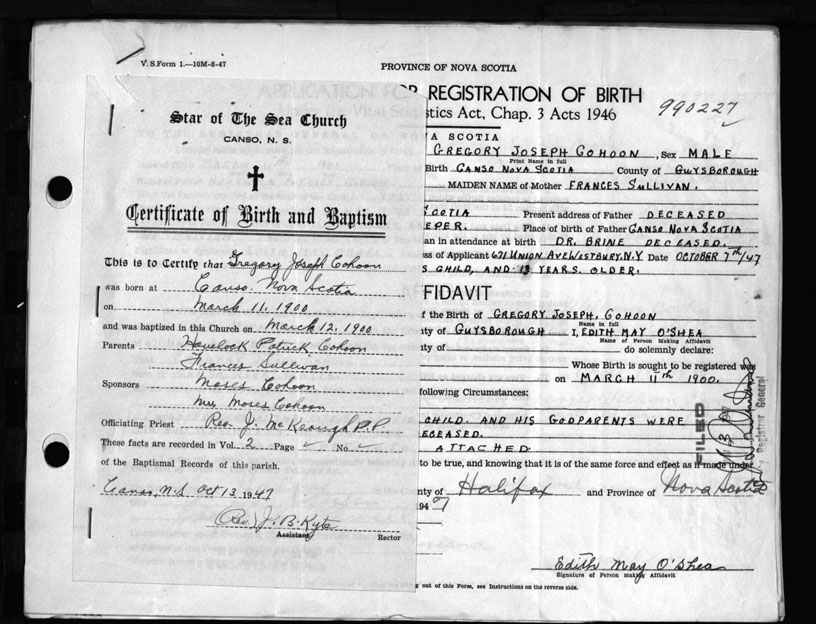 V. S. Form 1.—10M-8-47
PROVINCE OF NOVA SCOTIA
REGISTRATION OF BIRTH
stics Act, Chap. 3 Acts 1946
990227
Star of The Sea Church
CANSO, N. S.
Certificate of Birth and Baptism
This is to Certify that Gregory Joseph Cohoon
was born at Canso. Nova Scotia
on March 11. 1900
and was baptized in this Church on March 12, 1900
Parents Havelock Patrick Cohoon
Frances Sullivan
Sponsors Moses Cohoon
Mrs Moses Cohoon
Officiating Priest Rev. J. McKeough P.P.
These facts are recorded in Vol. 2 Page No.
of the Baptismal Records of this parish.
Canso, N.S Oct 13 1947
(Rev) J. B. Kyte
Assistant Rector
A SCOTIA
GREGORY JOSEPH COHOON, Sex MALE
Print Name in full
Birth CANSO NOVA SCOTIA County of GUYSBOROUGH
MAIDEN NAME of Mother FRANCES SULLIVAN.
SCOTIA Present address of Father DECEASED
EEPER. Place of birth of Father CANSO NOVA SCOTIA
an in attendance at birth DR. BRINE DECEASED.
ss of Applicant 671 UNION AVE WESTBURY. N.Y Date OCTOBER 7th/47
S CHILD, AND 13 YEARS. OLDER.
FFIDAVIT
f the Birth of GREGORY JOSEPH. COHOON
Name in full
ty of GUYSBOROUGH I, EDITH MAY O'SHEA
Name of Person Making Affidavit
ty of do solemnly declare:
Whose Birth is sought to be registered was
on MARCH 11th 1900.
following Circumstances:
CHILD. AND HIS GODPARENTS WERE
ECEASED.
ATTACHED
to be true, and knowing that it is of the same force and effect as if made under
ty of Halifax and Province of Nova Scotia
1947
FILED
Registrar General
Edith May O'Shea
Signature of Person making Affidavit
out of this Form, see Instructions on the reverse side.